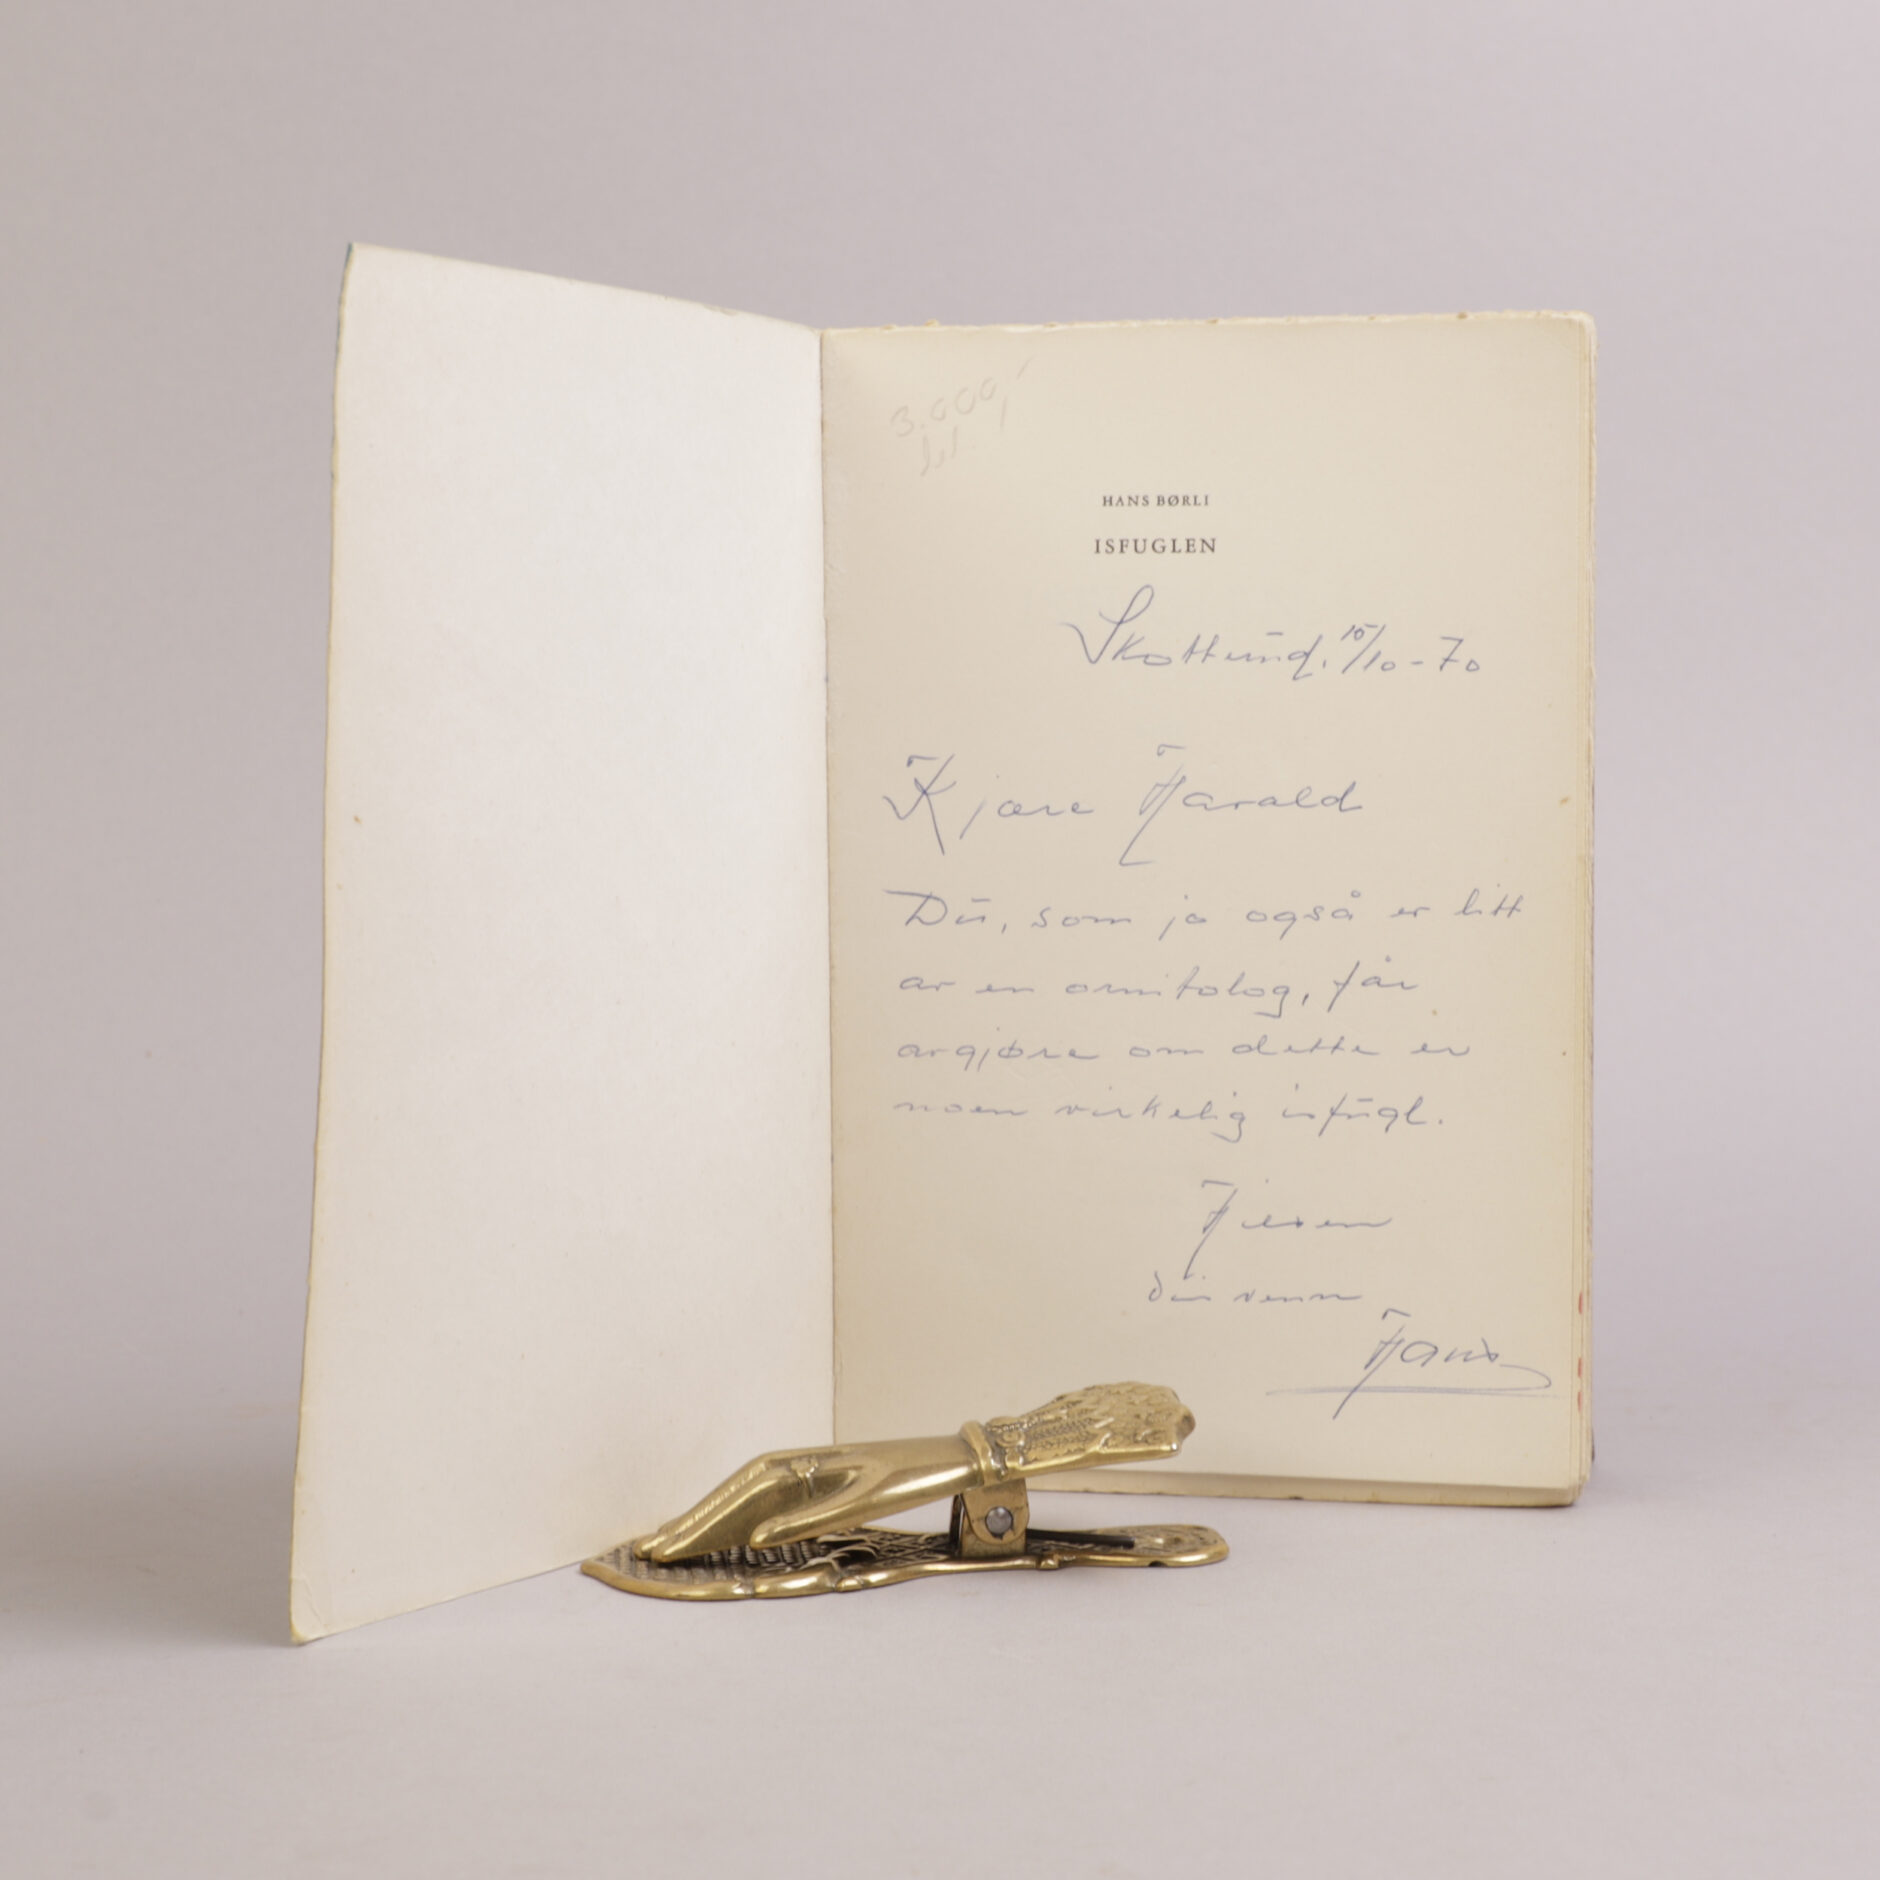 3.000,-
HANS BØRLI
ISFUGLEN
Skotterud, 15/10-70
Kjære Harald
Du, som jo også er litt
av en ornitolog, får
avgjøre om dette er
noen virkelig isfugl.
Hilsen
din venn
Hans